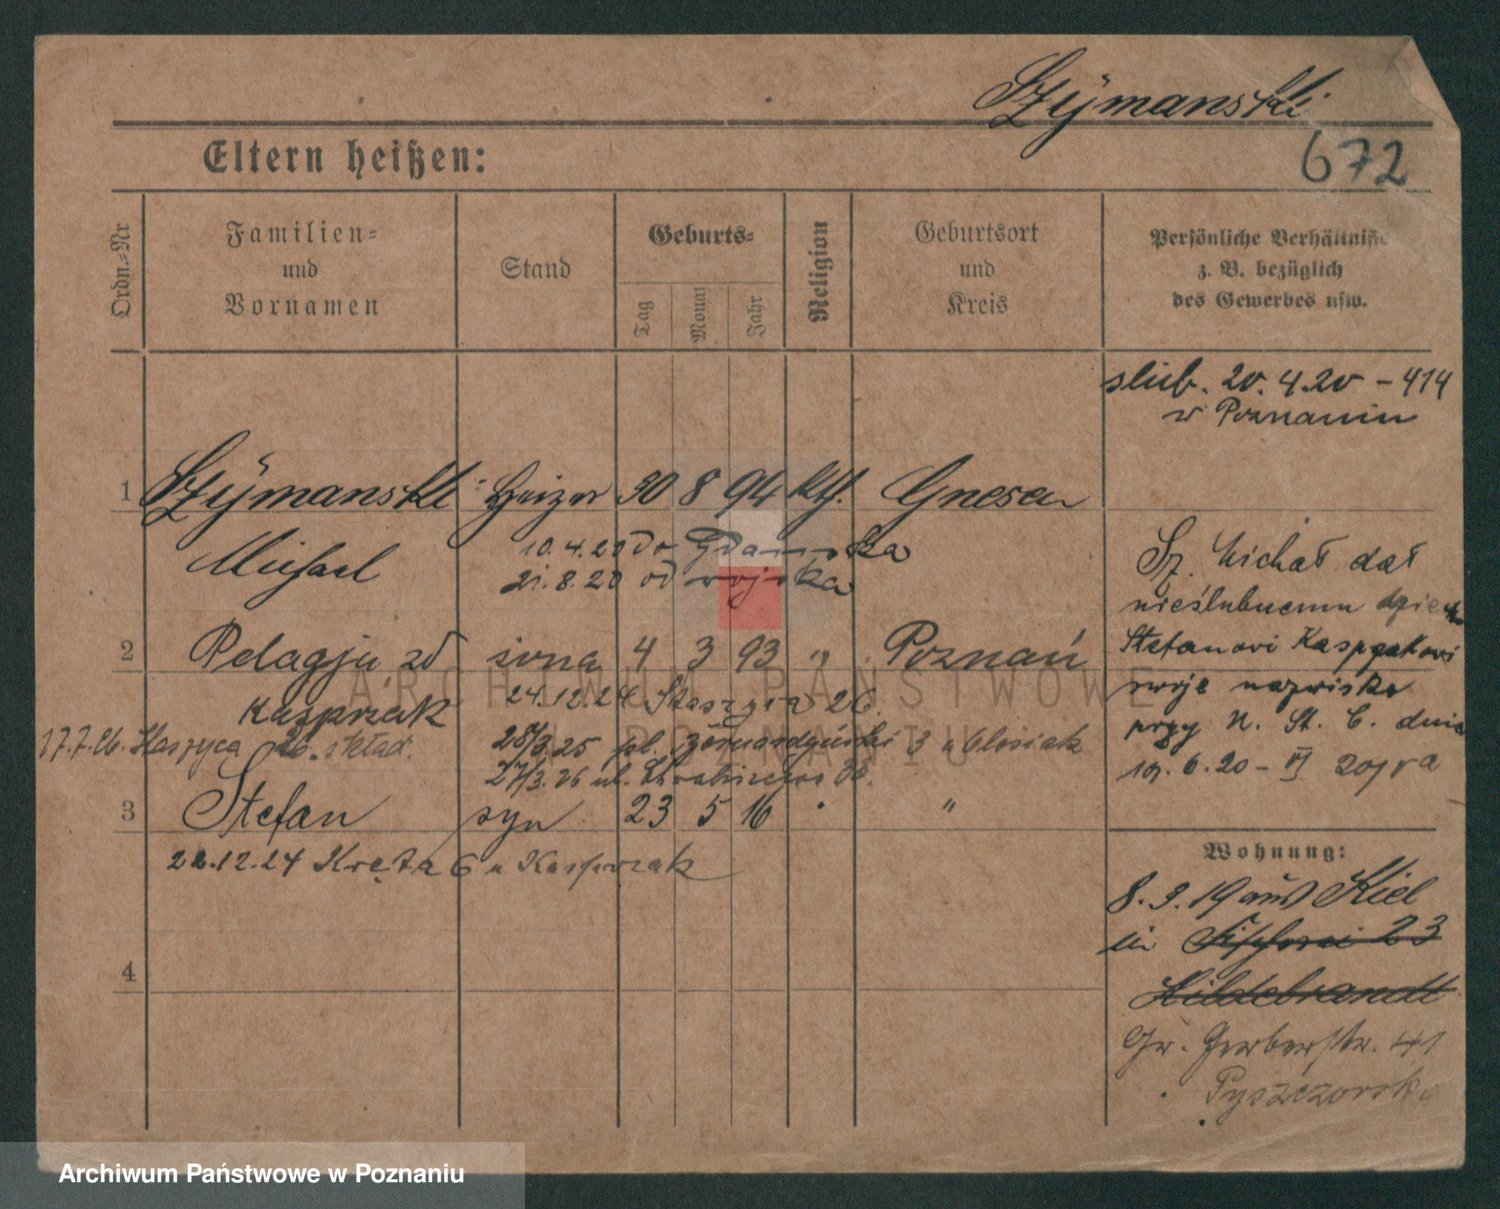 Szÿmanski
672
Eltern heißen:
Ordn.-Nr
Familien-
und
Vornamen
Stand
Geburts-
Tag
Monat
Jahr
Religion
Geburtsort
und
Kreis
Persönliche Verhältnisse
z. B. bezüglich
des Gewerbes usw.
ślub. 20.4.20 – 414
w Poznaniu
1 Szÿmanski Heizer 30 8 94 kth. Gnesen
Michael
10.4.20 do Gdańska
21.8.20 od wojska
Sz. Michał dał
nieślubnemu
Stefanowi Kaspzakowi
swoje nazwisko
przy U. St. C. dnia
19.6.20 – VI
2 Pelagja zd żona 4 3 93 „ Poznań
Kasprzak
24.12.24 26.
17.7.26. 26.
28/3.25 pl. Bernardyński 3 u
27/3.26 ul.
3 Stefan syn 23 5 16 "
22.12.24 Kręta 6 u Kasprzak
4
Wohnung:
8.3.19 aus Kiel
in Fischerei 23
Hildebrandt
Gr. Gerberstr. 41
Pyszczorska
ARCHIWUM PAŃSTWOWE
W POZNANIU
Archiwum Państwowe w Poznaniu